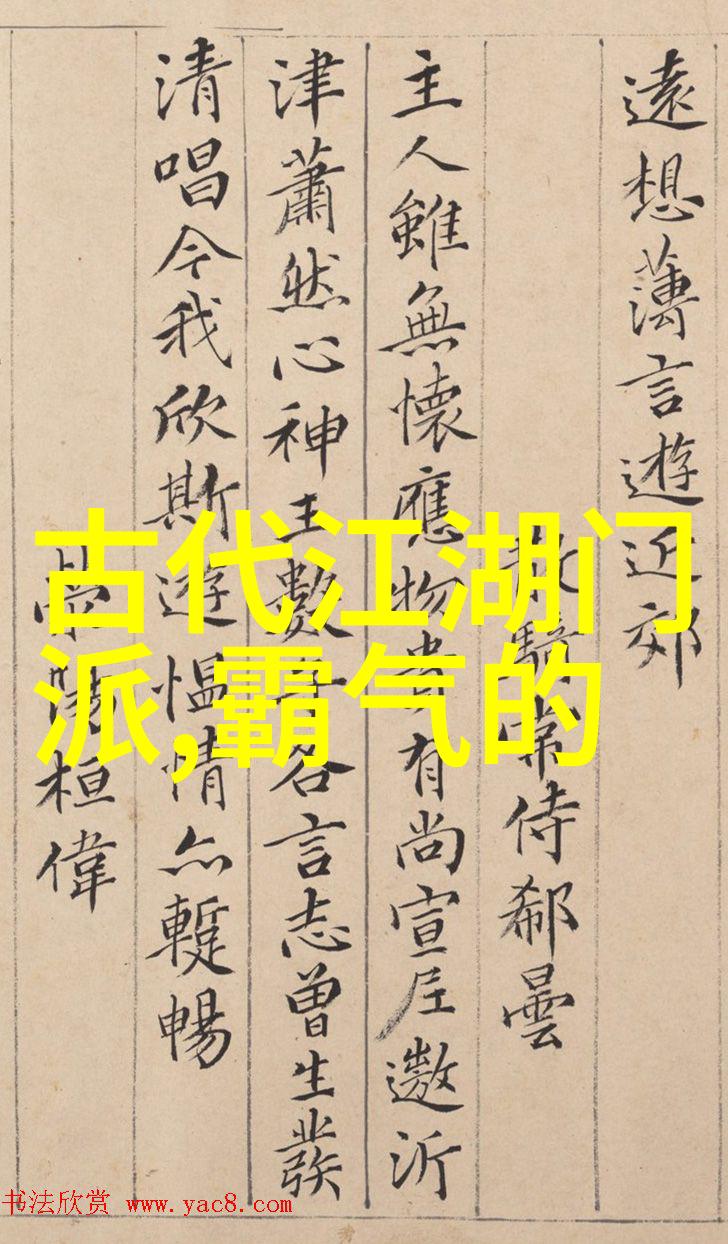 遠想蕩言遊近郊
散騎常侍郗曇
主人雖無懷應物貴有尚宣尼遨沂
津蕭然心神王數子各言志曾生發
清唱今我欣斯遊慍情亦蹔暢
滎陽桓偉
古代江湖门
派,霸气的
书法欣赏 www.yac8.com